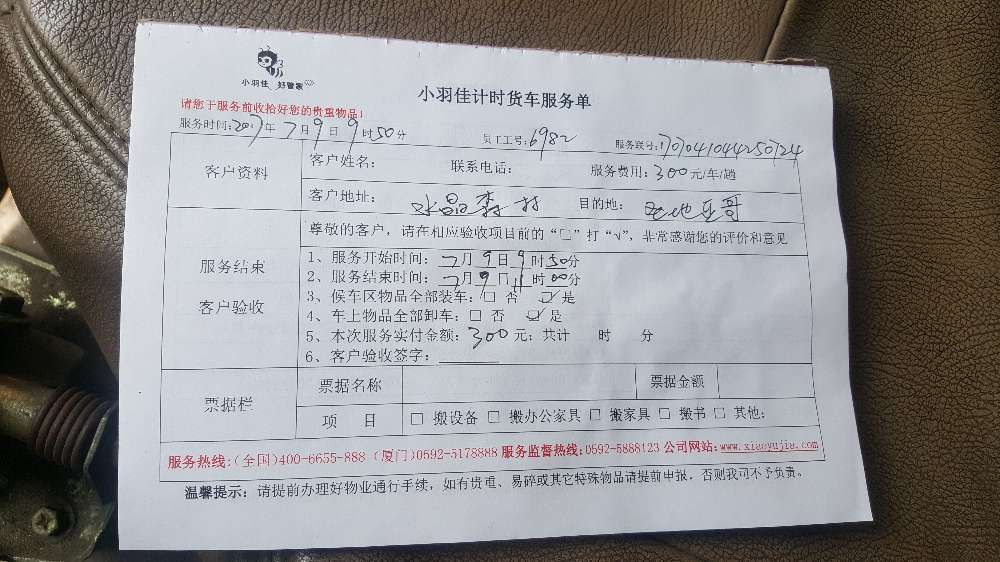 小羽佳 好管家
小羽佳计时货车服务单
请您于服务前收拾好您的贵重物品!
服务时间:2017年7月9日9时50分 员工工号:6982 服务联号:1707041044250724
客户资料
客户姓名: 联系电话: 服务费用:300元/车/趟
客户地址: 水晶森林 目的地:
服务结束
客户验收
尊敬的客户,请在相应验收项目前的“□”打“√”,非常感谢您的评价和意见
1、服务开始时间:7月9日9时50分
2、服务结束时间:7月9日11时00分
3、候车区物品全部装车:□ 否 ☑ 是
4、车上物品全部卸车:□ 否 ☑ 是
5、本次服务实付金额:300元;共计 时 分
6、客户验收签字:
票据栏
票据名称 票据金额
项 目 □ 搬设备 □ 搬办公家具 □ 搬家具 □ 搬书 □ 其他:
服务热线:(全国)400-6655-888 (厦门)0592-5178888 服务监督热线:0592-5888123 公司网站:www.xiaoyujia.com
温馨提示:请提前办理好物业通行手续,如有贵重、易碎或其它特殊物品请提前申报,否则我司不予负责。